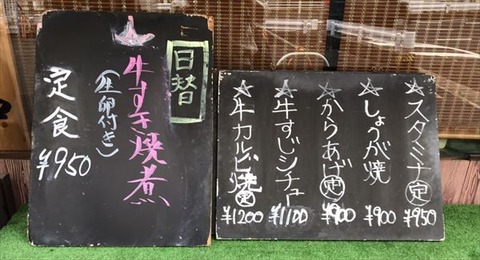 日替
牛すき焼煮
(生卵付き)
定食
¥950
スタミナ定
¥950
しょうが焼
¥900
からあげ定
¥900
牛すじシチュー
¥1100
牛カルビ焼定
¥1200